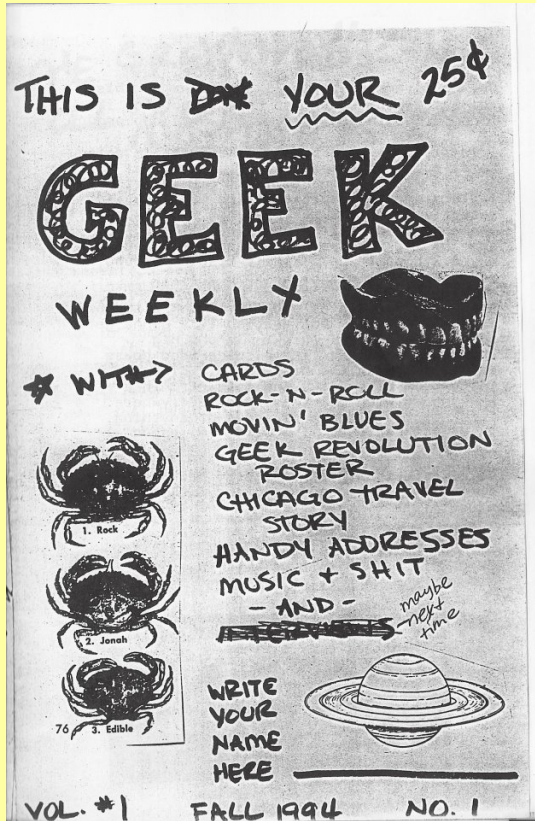 THIS IS YOUR 25¢
GEEK
WEEKLY
WITH
CARDS
ROCK-N-ROLL
MOVIN' BLUES
GEEK REVOLUTION
ROSTER
CHICAGO TRAVEL
STORY
HANDY ADDRESSES
MUSIC + SHIT
-AND-
INTERVIEWS
maybe
next
time
1. Rock
2. Jonah
76 3. Edible
WRITE
YOUR
NAME
HERE
VOL. #1 FALL 1994 NO. 1